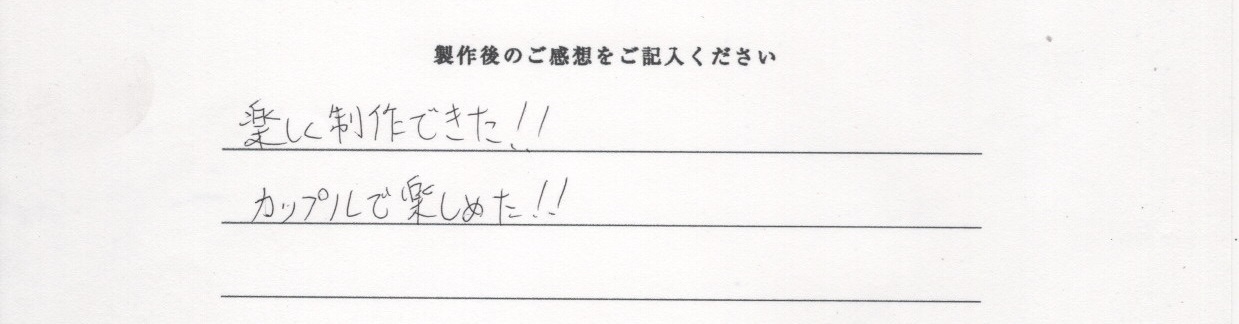 製作後のご感想をご記入ください
楽しく制作できた!!
カップルで楽しめた!!